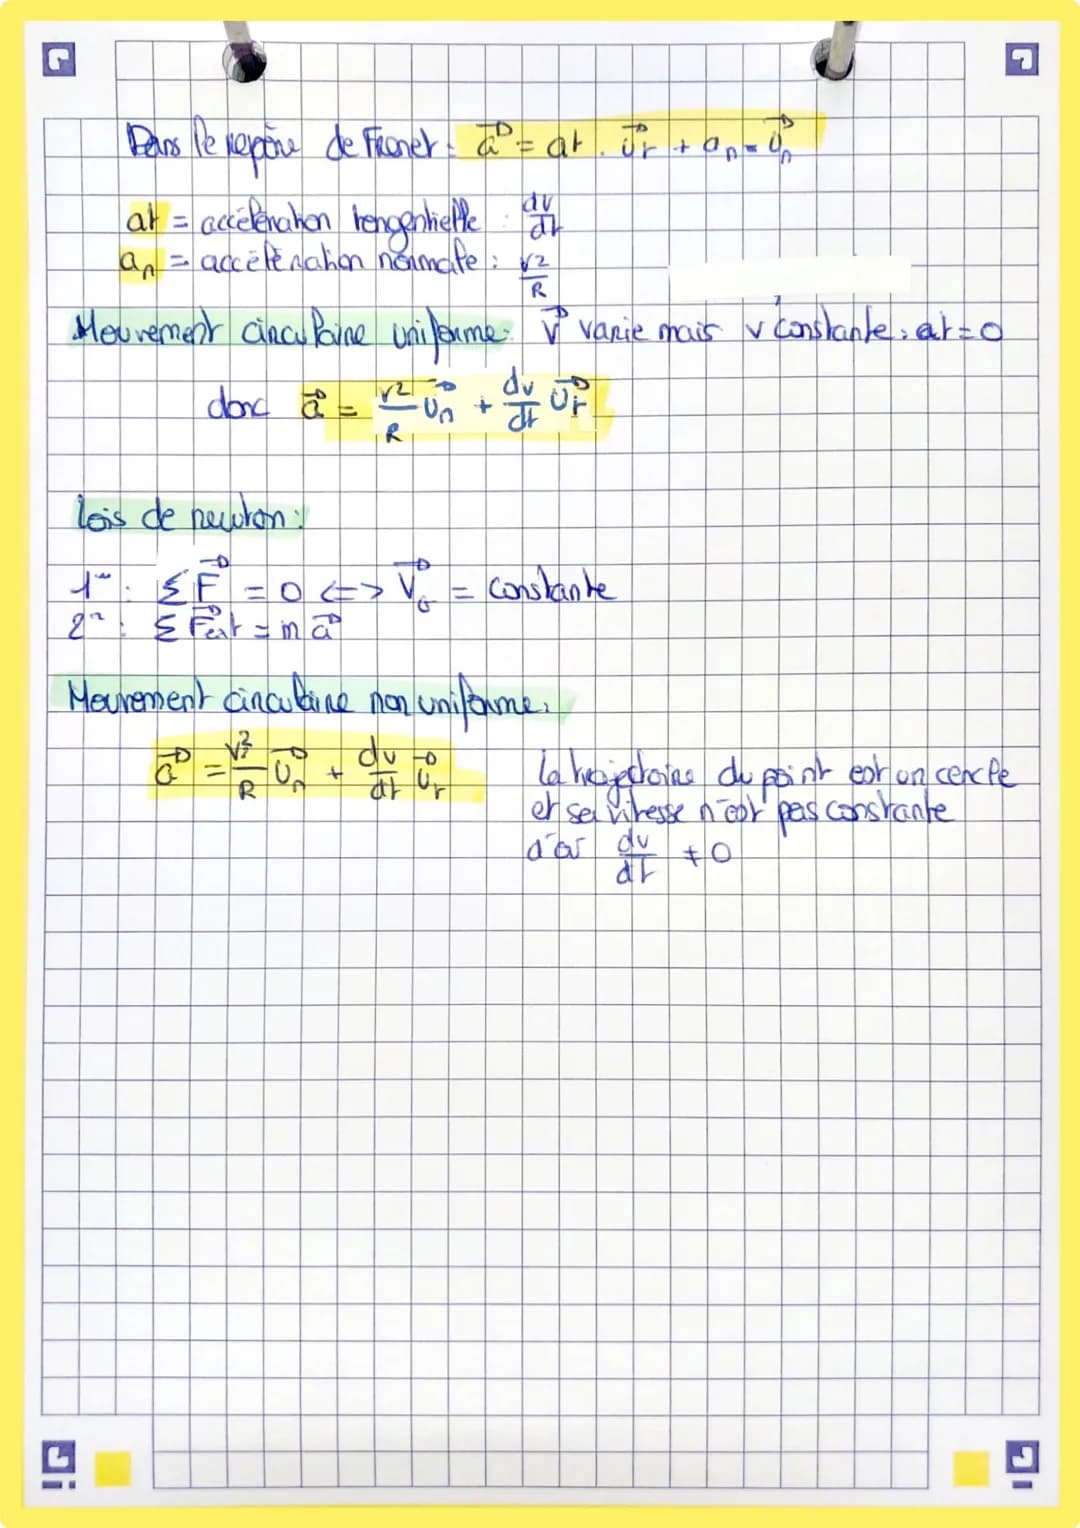 Dans le repère de Frenet : a⃗ = at . U⃗t + an = U⃗n
at = accélération tengentielle : dv/dt
an = accélération normale : v²/R
Mouvement circulaire uniforme : V⃗ varie mais v constante : at = 0
donc a⃗ = v²/R U⃗n + dv/dt U⃗t
lois de newton :
1ère : Σ F⃗ = 0 <=> V⃗G = constante
2e : Σ F⃗ext = m a⃗
Mouvement circulaire non uniforme :
a⃗ = v²/R U⃗n + dv/dt U⃗t
la trajectoire du point est un cercle
et sa vitesse n'est pas constante
d'où dv/dt ≠ 0